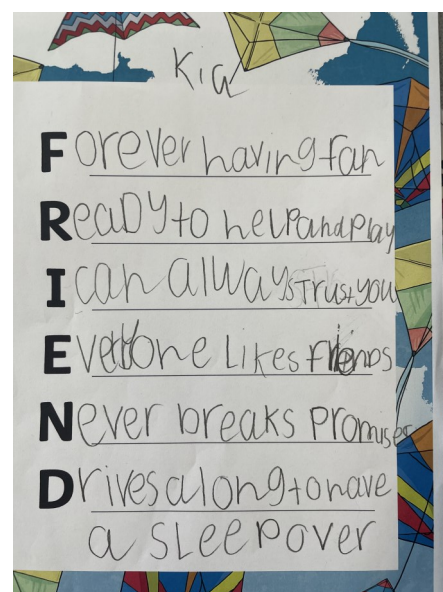 Kia
Forever having fan
Ready to help and play
I can always trust you
Everyone likes friends
Never breaks promises
Drives along to have
a sleepover